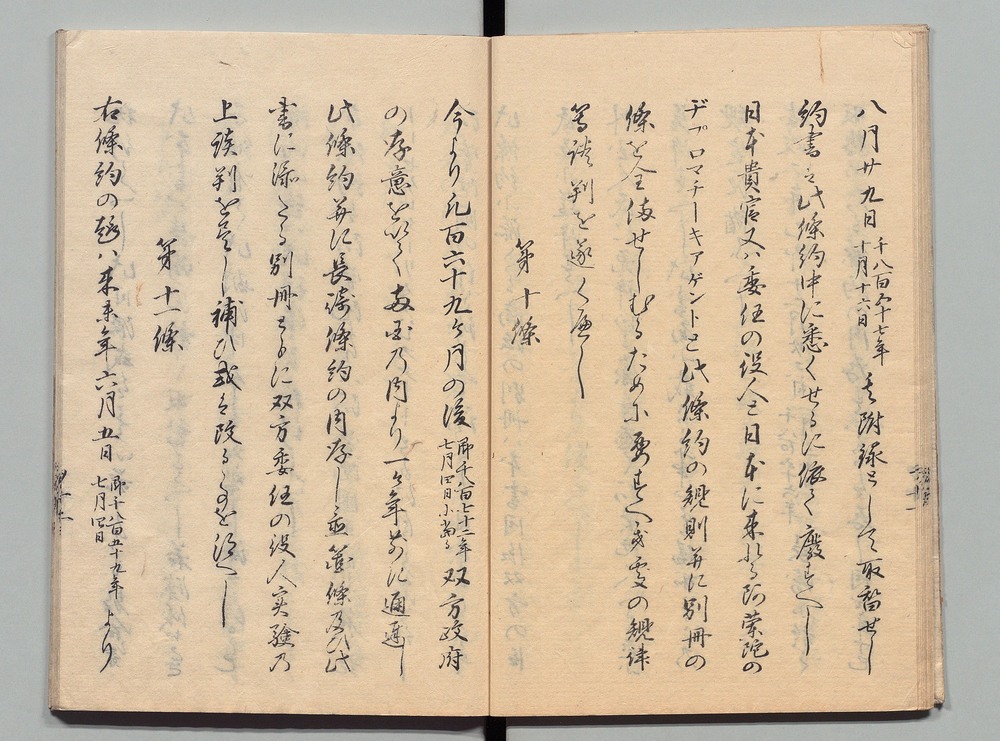 八月廿九日 千八百五十七年十月十六日 其附録として取留せし
約書之此條約中に悉くせるに依て廢すへし
日本貴官又ハ委任の役人と日本に来れる阿蘭陀の
ヂプロマチーキアゲントと此條約の規則并に別冊の
條を全備せしむるために要すへき處の規律
等談判を遂くへし
第十條
今より凡百六十九ケ月の後 即千八百七十二年七月四日に當る 双方政府
の存意を以て両国乃内より一ケ年前に通達し
此條約并に長﨑條約の内存し置箇條及ひ此
書に添たる別冊ともに双方委任の役人実驗乃
上談判を盡し補ひ或ハ改る事を得へし
第十一條
右條約の趣ハ来未年六月五日 即千八百五十九年七月四日 より